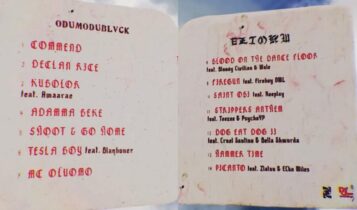 ODUMODUBLVCK
1 COMMEND
2 DECLAN RICE
3 KUBOLOR
feat. Amaarae
4 ADAMMA BEKE
5 SHOOT & GO HOME
6 TESLA BOY feat. Bianbuver
7 MC OLUOMO
8 BLOOD ON THE DANCE FLOOR
feat. Bloody Civilian & Wale
9 FIREGUN feat. Fireboy DML
10 SAINT OBI feat. Reeplay
11 STRIPPERS ANTHEM
feat. Teezee & PsychoYP
12 DOG EAT DOG II
feat. Cruel Santino & Bella Shmurda
13 HAMMER TIME
14 PICANTO feat. Zlatan & ECko Miles